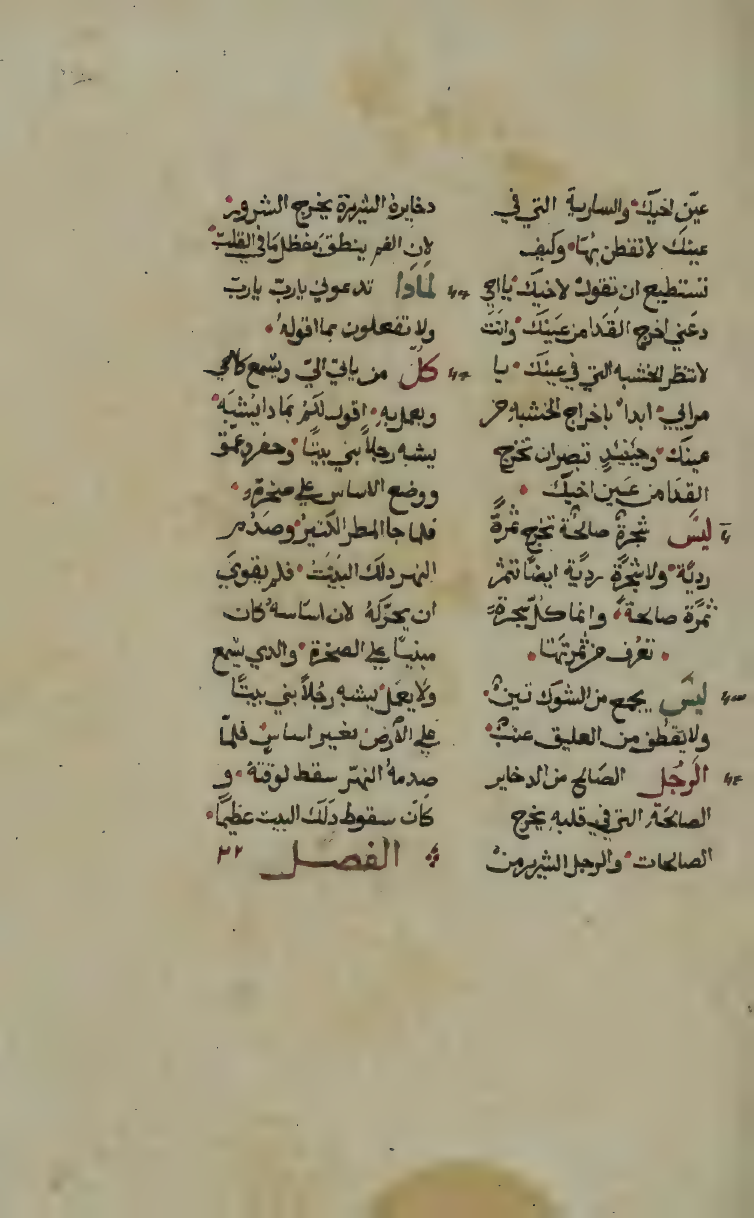 عين اخيك والسارية التي في
عينك لا تفطن بها وكيف
تستطيع ان تقول لاخيك يا اخي
دعني اخرج القدا من عينك وانت
لا تنظر الخشبه التي في عينك يا
مرايي ابدا باخراج الخشبه من
عينك وحينيد تبصر ان تخرج
القدا من عين اخيك
ليس شجرة صالحة تخرج ثمرة
ردية ولا شجرة ردية ايضا تثمر
ثمرة صالحة وانما كل شجرة
تعرف من ثمرتها
ليس يجمع من الشوك تين
ولا يقطف من العليق عنب
الرجل الصالح من الدخاير
الصالحة التي في قلبه يخرج
الصالحات والرجل الشرير من
دخايره الشريرة يخرج الشرور
لان الفم ينطق مفظل ما في القلب
لمادا تدعوني يارب يارب
ولا تفعلون بما اقوله
كل من ياتي الي ويسمع كلامي
ويعمل به اقول لكم بمادا يشبه
يشبه رجلا بني بيتا وحفر وعمق
ووضع الاساس علي صخرة
فلما جا المطر الكثير وصدم
النهر دلك البيت فلم يقوي
ان يحركه لان اساسه كان
مبنيا علي الصخرة والدي يسمع
ولا يعمل يشبه رجلا بني بيتا
علي الارض بغير اساس فلما
صدمه النهر سقط لوقته و
كان سقوط دلك البيت عظيما
الفصل ٢٢